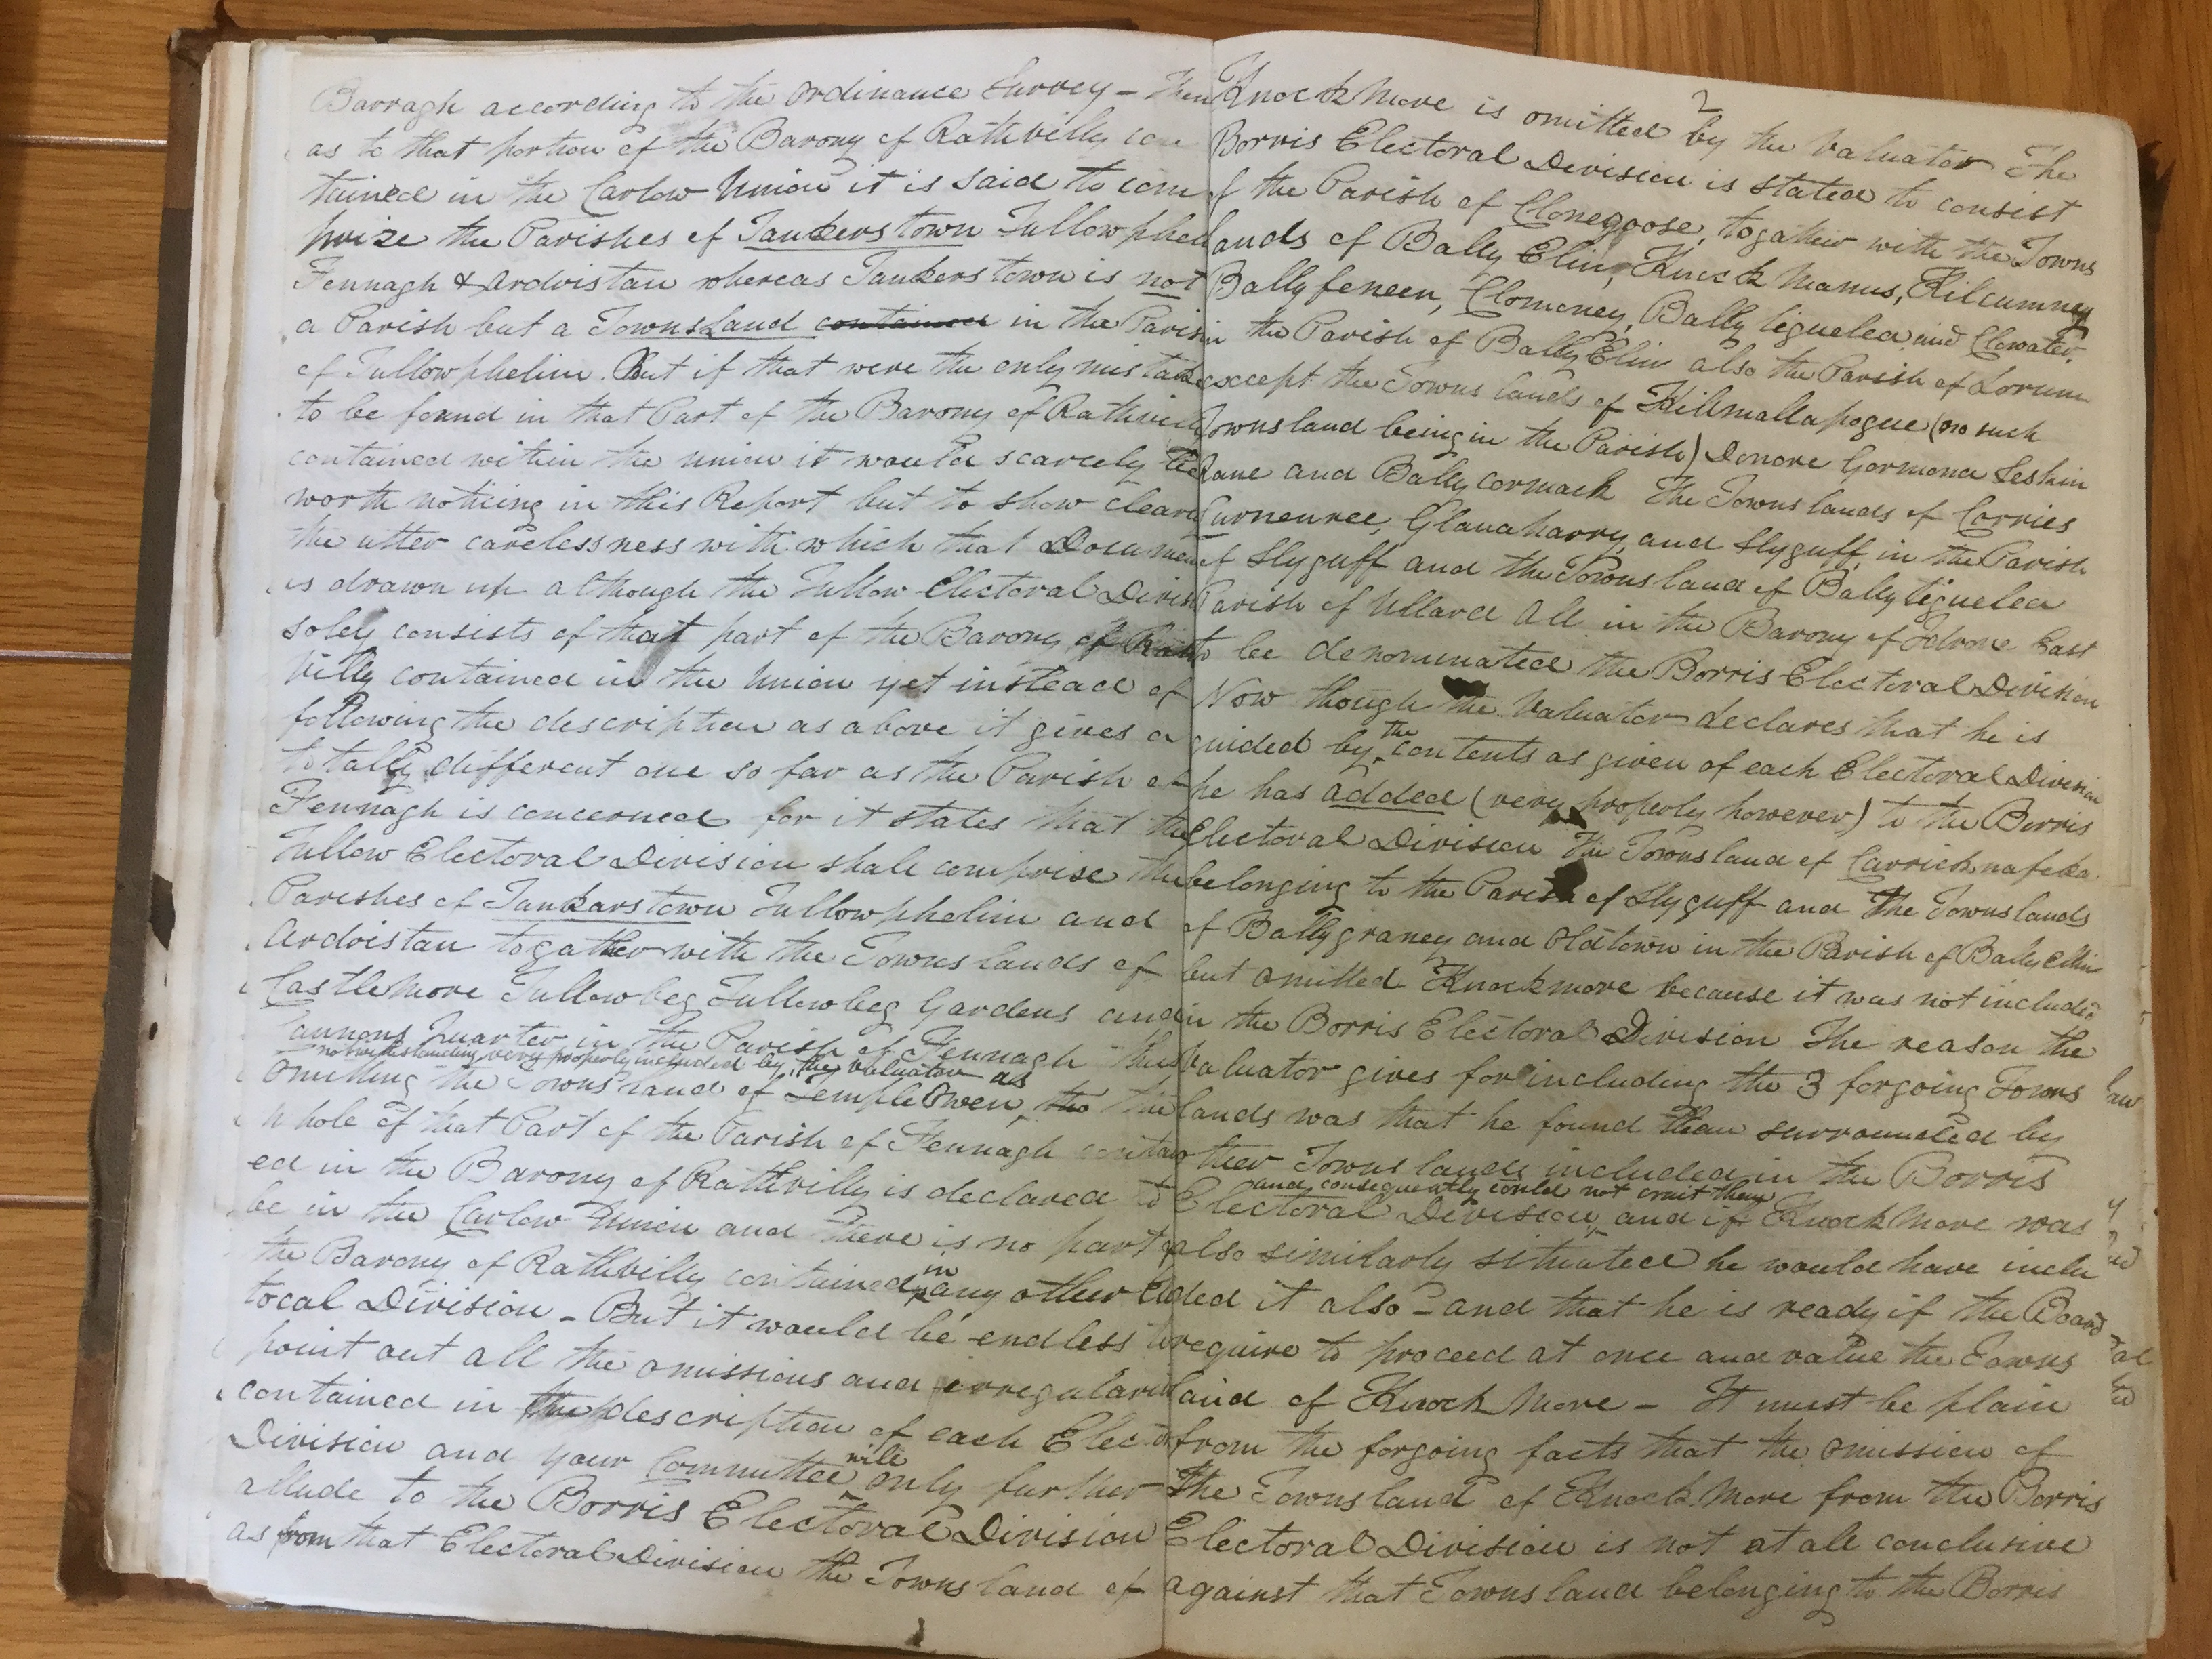 Barragh according to the Ordinance Survey - Then
as to that portion of the Barony of Rathvilly con
tained in the Carlow Union it is said to com
prize the Parishes of Tankerstown Tullowphelim
Fennagh & Ardoistan whereas Tankerstown is not
a Parish but a TownsLand contained in the Parish
of Tullowphelim. But if that were the only mistake
to be found in that Part of the Barony of Rathvilly
contained within the Union it would scarcely be
worth noticing in this Report but to show clearly
the utter carelessness with which that Document
is drawn up although the Tullow Electoral Division
soley consists of that part of the Barony of Rath
villy contained in the Union yet instead of
following the description as above it gives a
totally different one so far as the Parish of
Fennagh is concerned for it states that the
Tullow Electoral Division shall comprise the
Parishes of Tankarstown Tullowphelim and
Ardoistan togather with the Townslands of
CastleMore Tullowbeg Tullowbeg Gardens and
Cannons Quarter in the Parish of Fennagh thus
notwithstanding very properly included by the Valuator as
omitting the Townsland of Temple Owen, tho the
whole of that Part of the Parish of Fennagh contain
ed in the Barony of Rathvilly is declared to
be in the Carlow Union and there is no part of
the Barony of Rathvilly contained in any other Elec
toral Division - But it would be endless to
point out all the omissions and irregularities
contained in the description of each Elector
Division and your Committee will only further
allude to the Borris Electoral Division
as from that Electoral Division the Townsland of
2
Knock More is omitted by the Valuator The
Borris Electoral Division is stated to consist
of the Parish of Clonegoose, togather with the Towns
lands of Bally Elin, Knock Manus, Kilcumney
Ballyfeneen, Clomoney, Bally tiguelea, and Clowater,
in the Parish of Bally Elin also the Parish of Lorum
except the Towns lands of Killmallapogue (no such
Townsland being in the Parish) Donore Gormona Seskin
Rane and Ballycormack The Towns lands of Corries
Curnenree, Glanaharry, and Slyguff, in the Parish
of Slyguff and the Townsland of Ballytiguelea
Parish of Ullard All in the Barony of Idrone East
to be denominated the Borris Electoral Division
Now though the Valuator declares that he is
guided by the contents as given of each Electoral Division
he has added (very properly however) to the Borris
Electoral Division The Townsland of Carricknafeka
belonging to the Parish of Slyguff and the Townslands
of Ballygraney and Oldtown in the Parish of Bally Ellin
but omitted Knockmore because it was not included
in the Borris Electoral Division The reason the
Valuator gives for including the 3 forgoing Towns
lands was that he found them surrounded by
other Towns lands included in the Borris
Electoral Division, and consequently could not omit them and if Knock More was
also similarly situated he would have inclu
ded it also - and that he is ready if the Board
require to proceed at once and value the Towns
land of Knock More - It must be plain
from the forgoing facts that the omission of
The Townsland of Knock More from the Borris
Electoral Division is not at all conclusive
against that Townsland belonging to the Borris